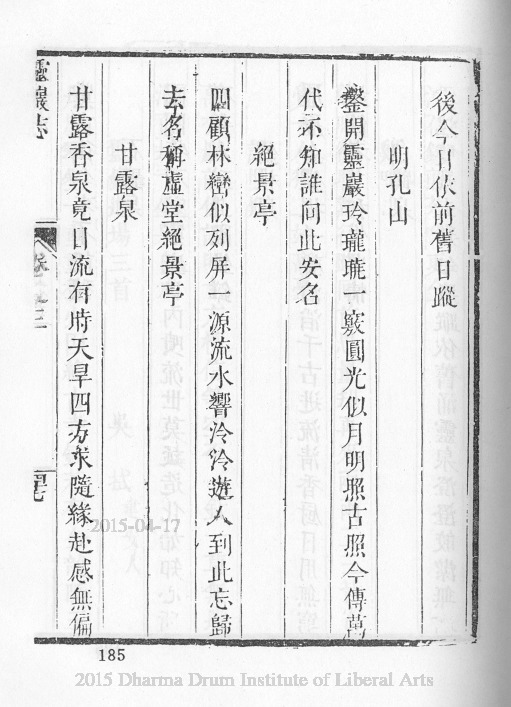 後今日依前舊日蹤
明孔山
鑿開靈巖玲瓏巃一竅圓光似月明照古照今傳萬
代不知誰向此安名
絕景亭
四顧林巒似列屏一源流水響泠泠遊人到此忘歸
去名稱虛堂絕景亭
甘露泉
甘露香泉竟日流有時天旱四方求隨緣赴感無偏
靈巖志
卷之三
185
2015-04-17
2015 Dharma Drum Institute of Liberal Arts